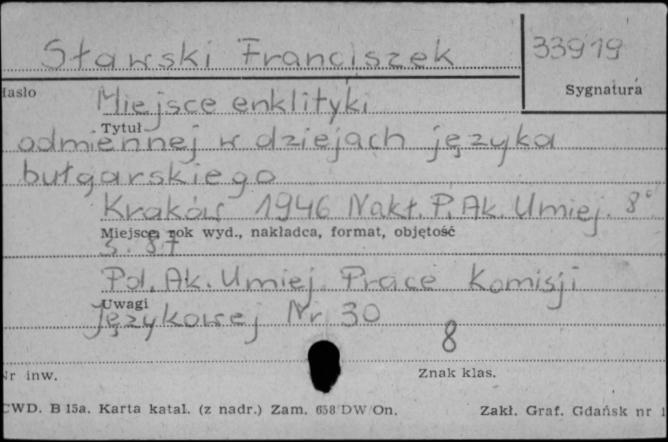 Sławski Franciszek
33919
Hasło
Sygnatura
Miejsce enklityki
Tytuł
odmiennej w dziejach języka
bułgarskiego
Kraków 1946 Nakł. P. Ak. Umiej. 8°
Miejsce, rok wyd., nakładca, format, objętość
s. 87
Pol. Ak. Umiej. Prace Komisji
Uwagi
Językowej Nr 30
8
Nr inw.
Znak klas.
CWD. B 15a. Karta katal. (z nadr.) Zam. 658 DW/On.
Zakł. Graf. Gdańsk nr 1